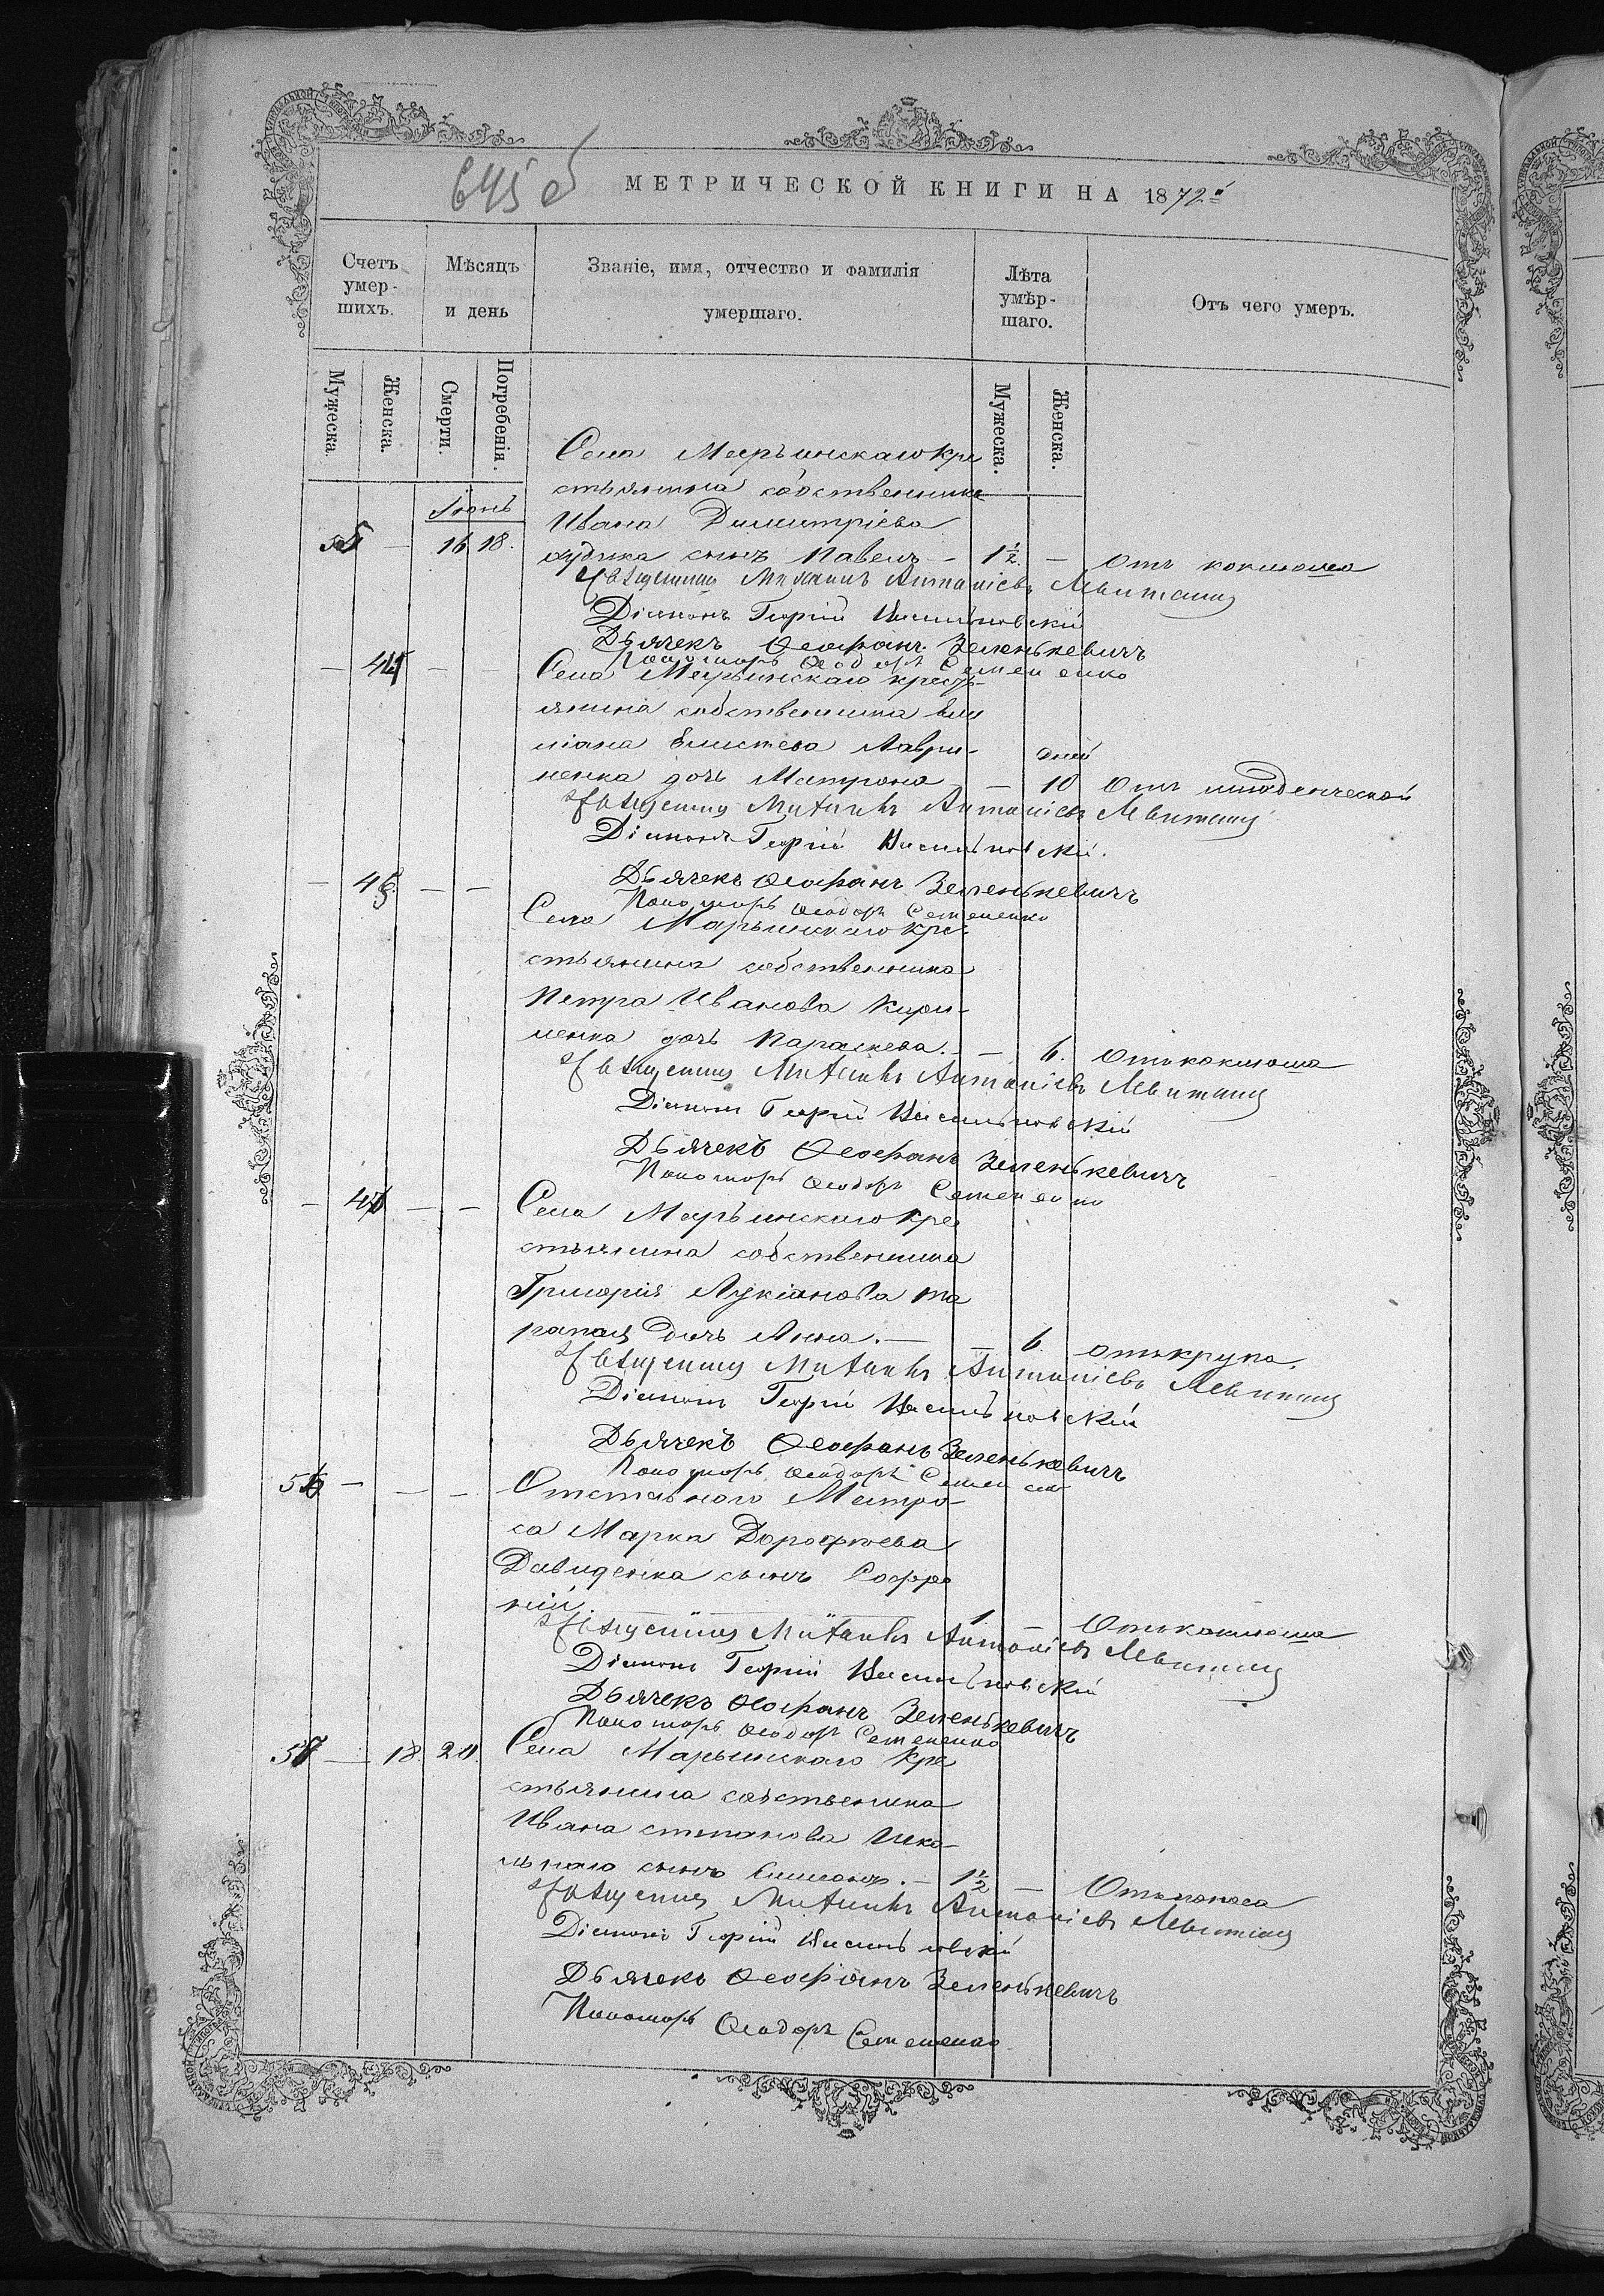 645 об
МЕТРИЧЕСКОЙ КНИГИ НА 1872й
Счетъ умер-шихъ.
Мѣсяцъ и день
Званіе, имя, отчество и фамилія умершаго.
Лѣта умѣр-шаго.
Отъ чего умеръ.
Мужеска.
Женска.
Смерти.
Погребенія.
Мужеска.
Женска.
Села Марьинскаго кре
стьянина собственника
Іюнь
Ивана Димитріева
16 18. сынъ Павелъ — 1½ — Отъ коклюша
Священникъ Михаилъ Антоніевъ Левитскій
Діаконъ Георгій Васильковскій
Дьячекъ Ѳеофанъ Зеленькевичъ
Пономарь Ѳеодоръ Семененко
— 44 — — Села Марьинскаго кресть-
янина собственника Еми
ліана Лаври-
дней
ненка дочь Матрона — 10 Отъ младенческой
Священникъ Михаилъ Антоніевъ Левитскій
Діаконъ Георгій Васильковскій.
Дьячекъ Ѳеофанъ Зеленькевичъ
— 45 — —
Пономарь Ѳеодоръ Семененко
Села Марьинскаго кре-
стьянина собственника
Петра Иванова Кири-
ленка дочь Параскева. — — 6. Отъ коклюша
Священникъ Михаилъ Антоніевъ Левитскій
Діаконъ Георгій Васильковскій
Дьячекъ Ѳеофанъ Зеленькевичъ
Пономарь Ѳеодоръ Семененко
— 46 — — Села Марьинскаго кре
стьянина собственника
Григорія Лукіанова Та
рапаи дочь Анна. — — 6. отъ крупа.
Священникъ Михаилъ Антоніевъ Левитскій
Діаконъ Георгій Васильковскій
Дьячекъ Ѳеофанъ Зеленькевичъ
Пономарь Ѳеодоръ Семененко
56 — — — Отставного Матро-
са Марка Дорофѣева
Давиденка сынъ Софро
ній. — 1 — Отъ коклюша
Священникъ Михаилъ Антоніевъ Левитскій
Діаконъ Георгій Васильковскій
Дьячекъ Ѳеофанъ Зеленькевичъ
Пономарь Ѳеодоръ Семененко
57 — 18. 20 Села Марьинскаго кре
стьянина собственника
Ивана Степанова Шко-
льнаго сынъ Симеонъ. — 1½ — Отъ поноса
Священникъ Михаилъ Антоніевъ Левитскій
Діаконъ Георгій Васильковскій
Дьячекъ Ѳеофанъ Зеленькевичъ
Пономарь Ѳеодоръ Семененко